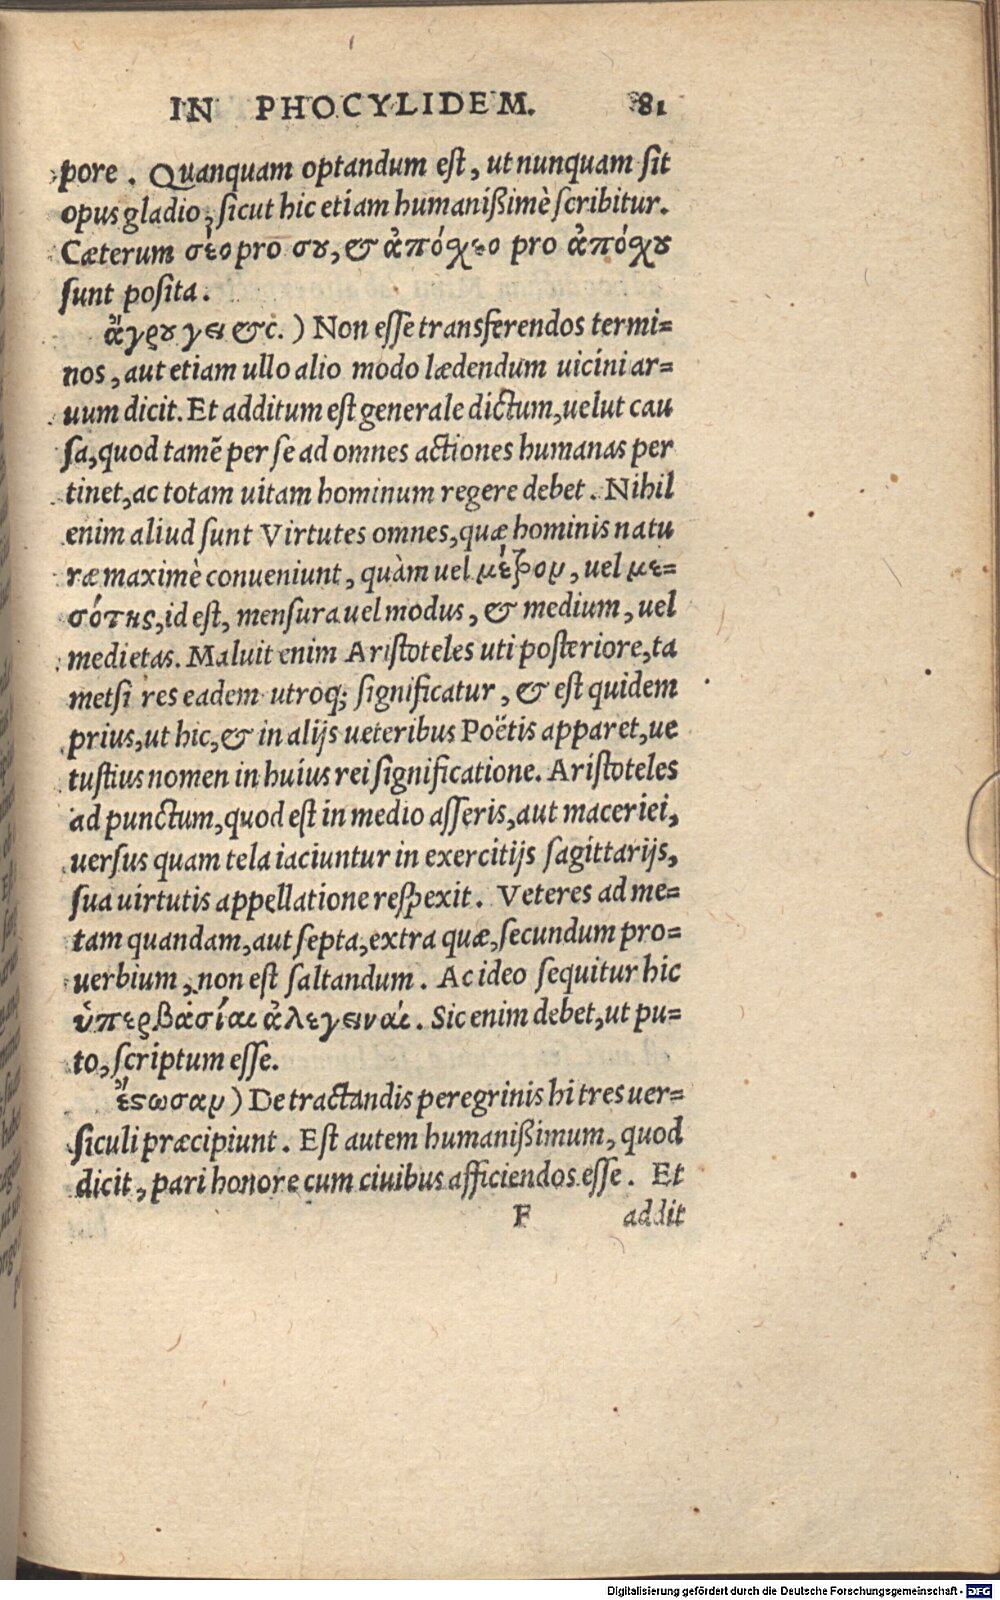 IN PHOCYLIDEM. 81
pore. Quanquam optandum est, ut nunquam sit
opus gladio, sicut hic etiam humanißimè scribitur.
Cæterum σέο pro σου, & ἀπόχεο pro ἀπόχου
sunt posita.
ἄγρου γει &c.) Non esse transferendos termi=
nos, aut etiam ullo alio modo lædendum uicini ar=
uum dicit. Et additum est generale dictum, uelut cau
sa, quod tamẽ per se ad omnes actiones humanas per
tinet, ac totam uitam hominum regere debet. Nihil
enim aliud sunt Virtutes omnes, quæ hominis natu
ræ maximè conueniunt, quàm uel μέτρον, uel με=
σότης, id est, mensura uel modus, & medium, uel
medietas. Maluit enim Aristoteles uti posteriore, ta
metsi res eadem utroq; significatur, & est quidem
prius, ut hic, & in alijs ueteribus Poëtis apparet, ue
tustius nomen in huius rei significatione. Aristoteles
ad punctum, quod est in medio asseris, aut maceriei,
uersus quam tela iaciuntur in exercitijs sagittarijs,
sua uirtutis appellatione respexit. Veteres ad me=
tam quandam, aut septa, extra quæ, secundum pro=
uerbium, non est saltandum. Ac ideo sequitur hic
ὑπερβασίαι ἀλεγειναί. Sic enim debet, ut pu=
to, scriptum esse.
ἔστωσαν) De tractandis peregrinis hi tres uer=
siculi præcipiunt. Est autem humanißimum, quod
dicit, pari honore cum ciuibus afficiendos esse. Et
F addit
Digitalisierung gefördert durch die Deutsche Forschungsgemeinschaft - DFG